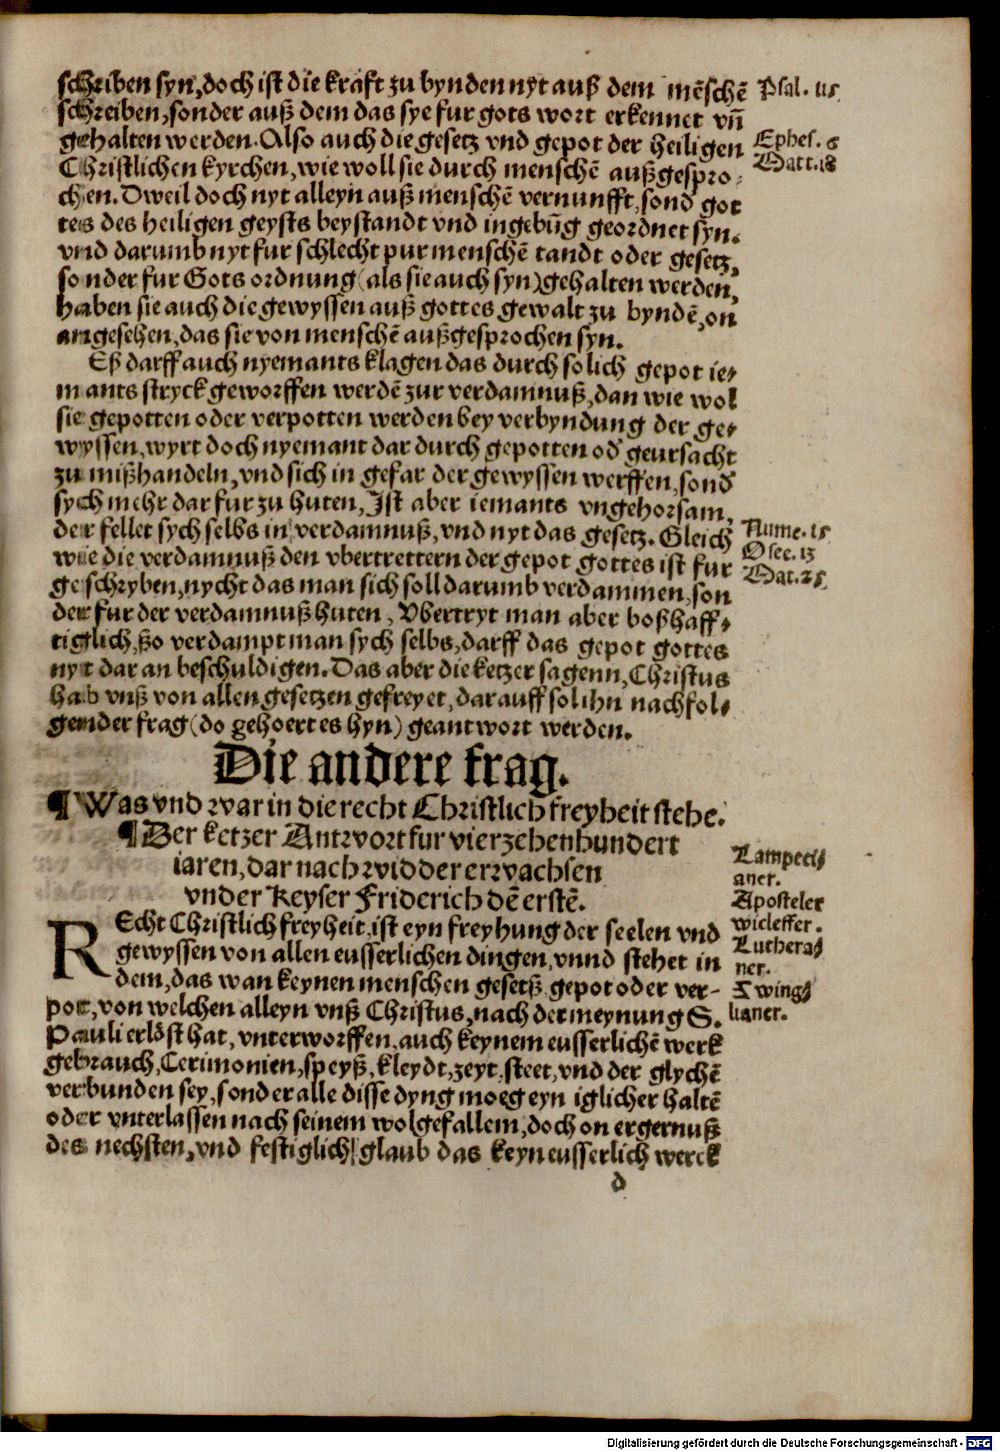 schriben syn, doch ist die kraft zu bynden nyt auß dem mēschē
schreiben, sonder auß dem das sye fur gots wort erkennet vñ
gehalten werden. Also auch die gesetz vnd gepot der heiligen
Christlichen kyrchen, wie woll sie durch menschē außgespro-
chen. Dweil doch nyt alleyn auß menschē vernunfft, sond got
tes des heiligen geysts beystandt vnd ingebūg geordnet syn.
vnd darumb nyt fur schlecht pur menschē tandt oder gesetz,
sonder fur Gots ordnung (als sie auch syn) gehalten werden,
haben sie auch die gewyssen auß gottes gewalt zu byndē, on
angesehen, das sie von menschē außgesprochen syn.
Eß darff auch nyemants klagen das durch solich gepot ie-
mants stryck geworffen werdē zur verdamnuß, dan wie wol
sie gepotten oder verpotten werden bey verbyndung der ge-
wyssen, wyrt doch nyemant dar durch gepotten od geursacht
zu mißhandeln, vnd sich in gefar der gewyssen werffen, sond
sych mehr dar fur zu huten, Ist aber iemants vngehorsam,
der fellet sych selbs in verdamnuß, vnd nyt das gesetz. Gleich
wie die verdamnuß den vbertrettern der gepot gottes ist fur
geschryben, nycht das man sich soll darumb verdammen, son
der fur der verdamnuß huten, Vbertryt man aber boßhaff-
tiglich, ßo verdampt man sych selbs, darff das gepot gottes
nyt dar an beschuldigen. Das aber die ketzer sagenn, Christus
hab vnß von allen gesetzen gefreyet, dar auff sol ihn nachfol-
gender frag (do gehoert es hyn) geantwort werden.
Psal. 115
Ephes. 6
Matt. 18
Nume. 15
Osee. 13
Mat. 25
Die andere frag.
¶ Was vnd war in die recht Christlich freyheit stehe.
¶ Der ketzer Antwort fur vierzehenhundert
iaren, dar nach widder erwachsen
vnder Keyser Friderich dē erstē.
REcht Christlich freyheit, ist eyn freyhung der seelen vnd
gewyssen von allen eusserlichen dingen, vnnd stehet in
dem, das wan keynen menschen gesetß gepot oder ver-
pot, von welchen alleyn vnß Christus, nach der meynung S.
Pauli erlöst hat, vnterworffen, auch keynem eusserlichē werk
gebrauch, Cerimonien, speyß, kleydt, zeyt, steet, vnd der glychē
verbunden sey, sonder alle disse dyng moeg eyn iglicher haltē
oder vnterlassen nach seinem wolgefallem, doch on ergernuß
des nechsten, vnd festiglich glaub das keyn eusserlich werck
Lampeci-
aner.
Aposteler
wicleffer.
Luthera-
ner.
Zwing-
lianer.
d
Digitalisierung gefördert durch die Deutsche Forschungsgemeinschaft - DFG